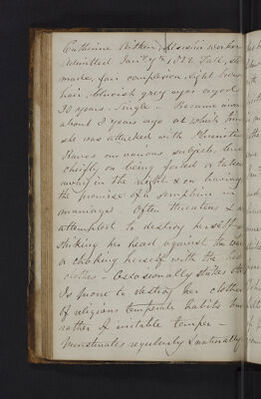 Catherine Aitken
Admitted Jany 7th 1822 Tall,
made, fair complexion, light brown
hair, blueish grey eyes aged
30 years - Single - Became
about 3 years ago at which time
she was attacked with
Raves on various subjects, but
chiefly on being forced or taken
away in the night & on having
the promise of a in
marriage Often threatens &
attempted to destroy herself
striking her head against the wall
or choking herself with the bed
clothes - Occasionally strikes
Is prone to destroy her clothes
of religious temperate habits but
rather of irritable temper -
Menstruates regularly & naturally